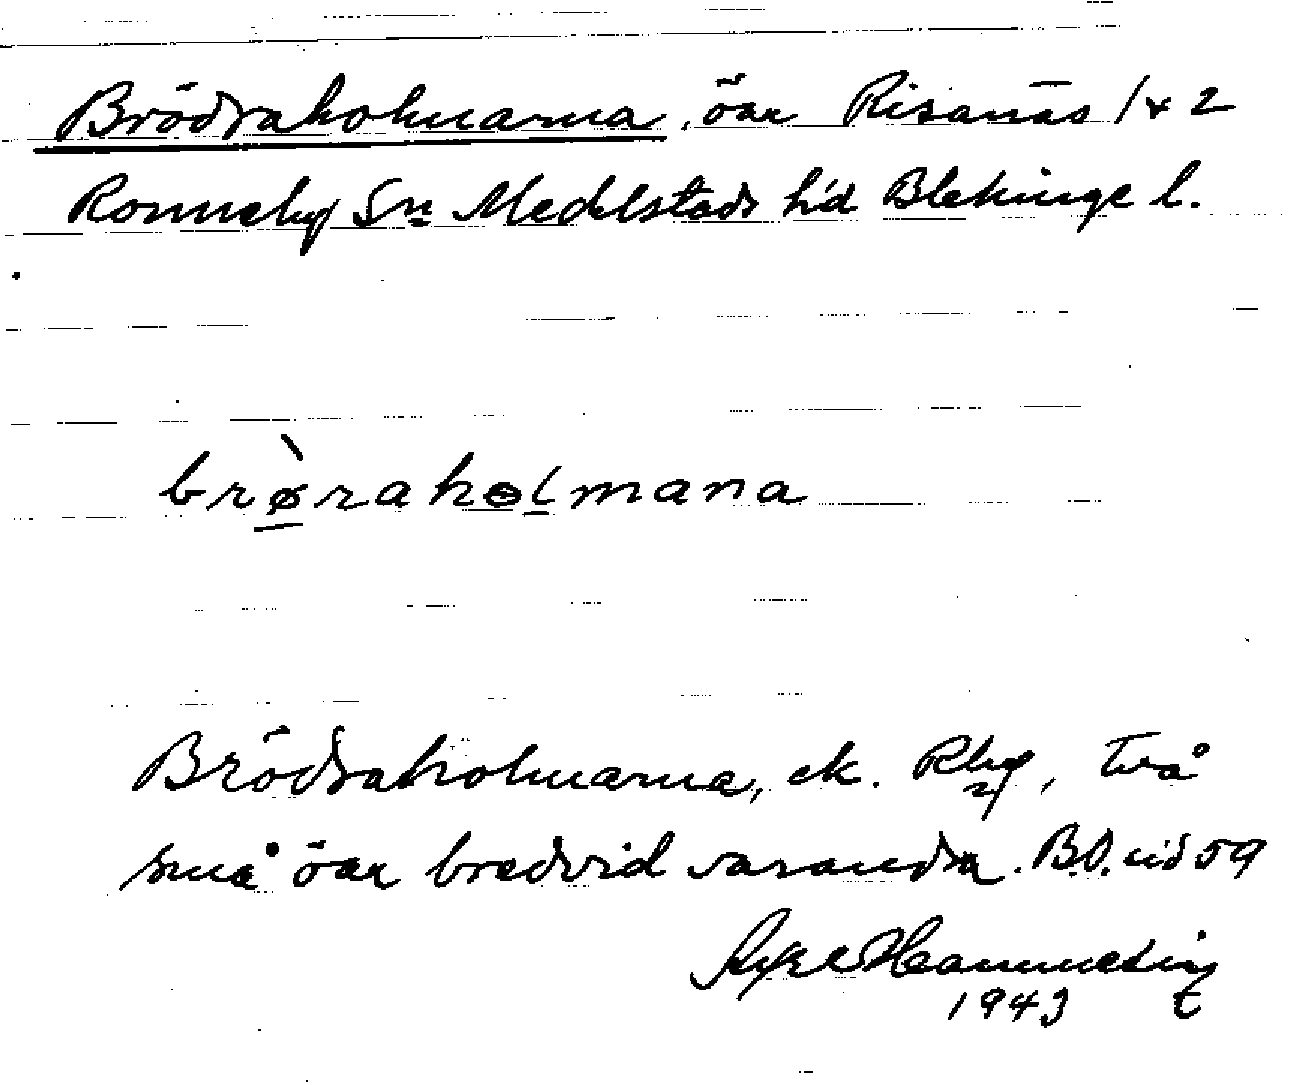 Brödraholmarna, öar Risanäs 1 & 2
Ronneby Sn Medelstads h'd Blekinge l.
brø̀raholmana
Brödraholmarna, ek. Rby, två
små öar bredvid varandra. B.O. sid 59
Axel
1943